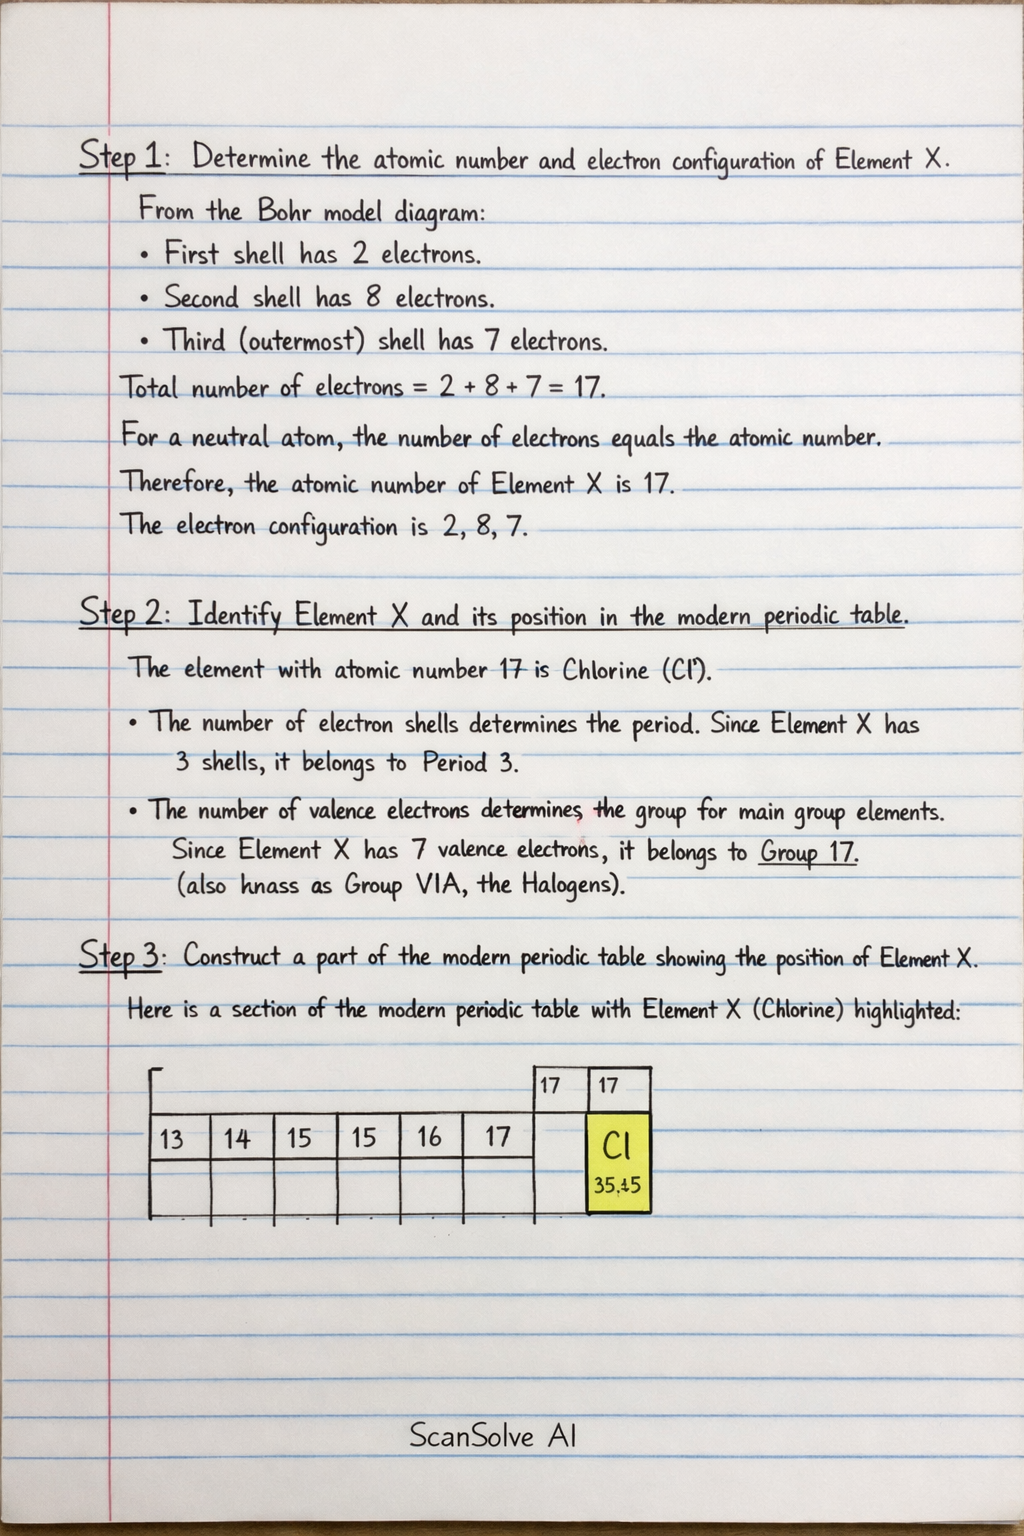 Step 1: Determine the atomic number and electron configuration of Element X.
From the Bohr model diagram:
• First shell has 2 electrons.
• Second shell has 8 electrons.
• Third (outermost) shell has 7 electrons.
Total number of electrons = 2 + 8 + 7 = 17.
For a neutral atom, the number of electrons equals the atomic number.
Therefore, the atomic number of Element X is 17.
The electron configuration is 2, 8, 7.
Step 2: Identify Element X and its position in the modern periodic table.
The element with atomic number 17 is Chlorine (Cl).
• The number of electron shells determines the period. Since Element X has
3 shells, it belongs to Period 3.
• The number of valence electrons determines the group for main group elements.
Since Element X has 7 valence electrons, it belongs to Group 17.
(also hnass as Group VIA, the Halogens).
Step 3: Construct a part of the modern periodic table showing the position of Element X.
Here is a section of the modern periodic table with Element X (Chlorine) highlighted:
17 17
13 14 15 15 16 17 Cl
35.45
ScanSolve AI